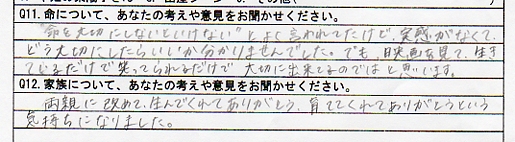 Q11. 命について、あなたの考えや意見をお聞かせください。
"命を大切にしないといけない"とよく言われてたけど、実感がなくて、
どう大切にしたらいいか分かりませんでした。でも、映画を見て、生き
ているだけで笑ってられるだけで大切に出来てるのではと思います。
Q12. 家族について、あなたの考えや意見をお聞かせください。
両親に改めて、生んでくれてありがとう、育ててくれてありがとうという
気持ちになりました。